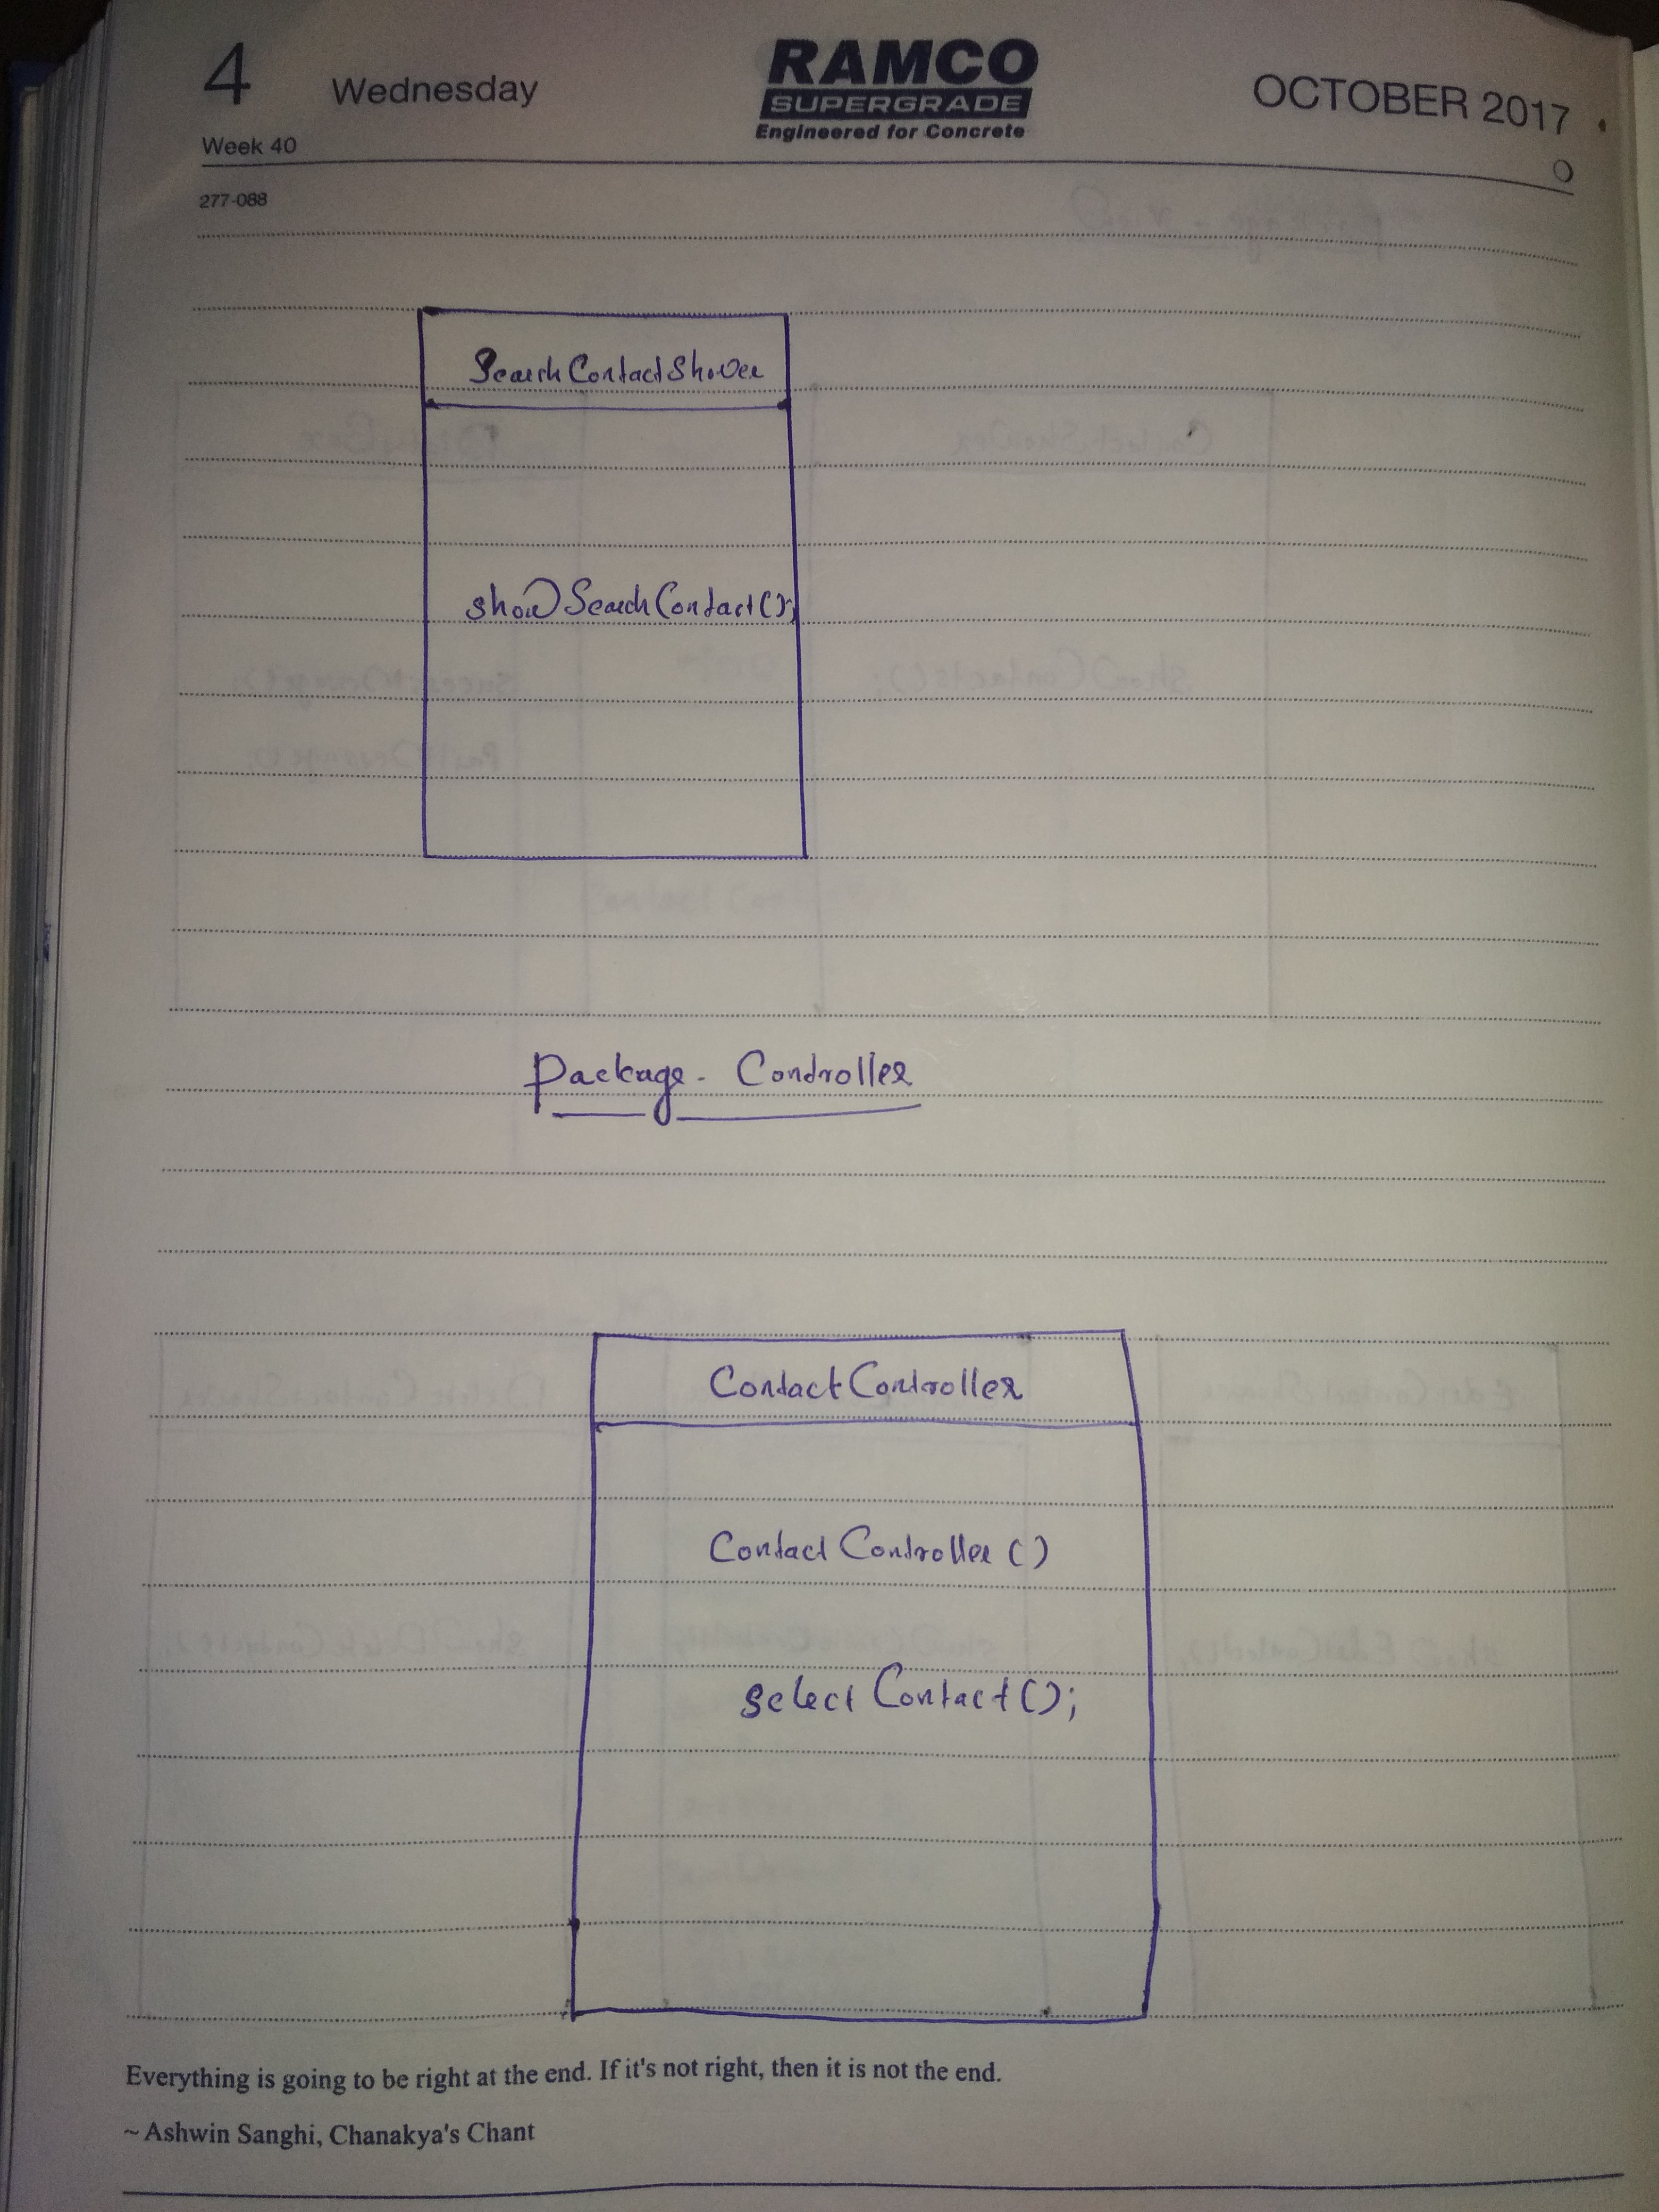 4 Wednesday
RAMCO
SUPERGRADE
Engineered for Concrete
OCTOBER 2017
Week 40
277-088
SearchContactShower
showSearchContact();
Package - Controller
ContactController
ContactController()
select Contact();
Everything is going to be right at the end. If it's not right, then it is not the end.
~ Ashwin Sanghi, Chanakya's Chant